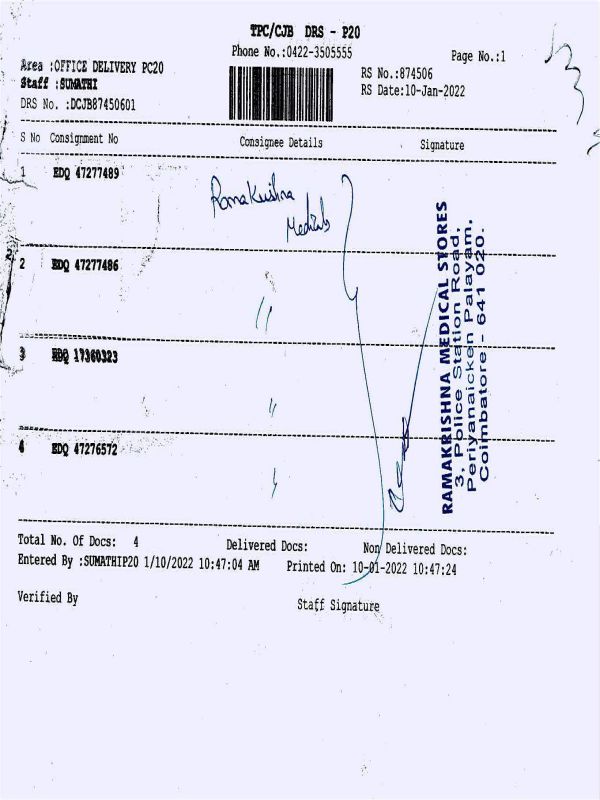 TPC/CJB DRS - P20
Phone No.:0422-3505555
Page No.:1
Area :OFFICE DELIVERY PC20
Staff :SUMATHI
DRS No. :DCJB87450601
RS No.:874506
RS Date:10-Jan-2022
S No Consignment No Consignee Details Signature
1 EDQ 47277489
RamaKrishna
Medicals
2 EDQ 47277486 "
3 EDQ 17360323 "
4 EDQ 47276572 "
RAMAKRISHNA MEDICAL STORES
3, Police Station Road,
Periyanaicken Palayam,
Coimbatore - 641 020.
Total No. Of Docs: 4 Delivered Docs: Non Delivered Docs:
Entered By :SUMATHIP20 1/10/2022 10:47:04 AM Printed On: 10-01-2022 10:47:24
Verified By Staff Signature